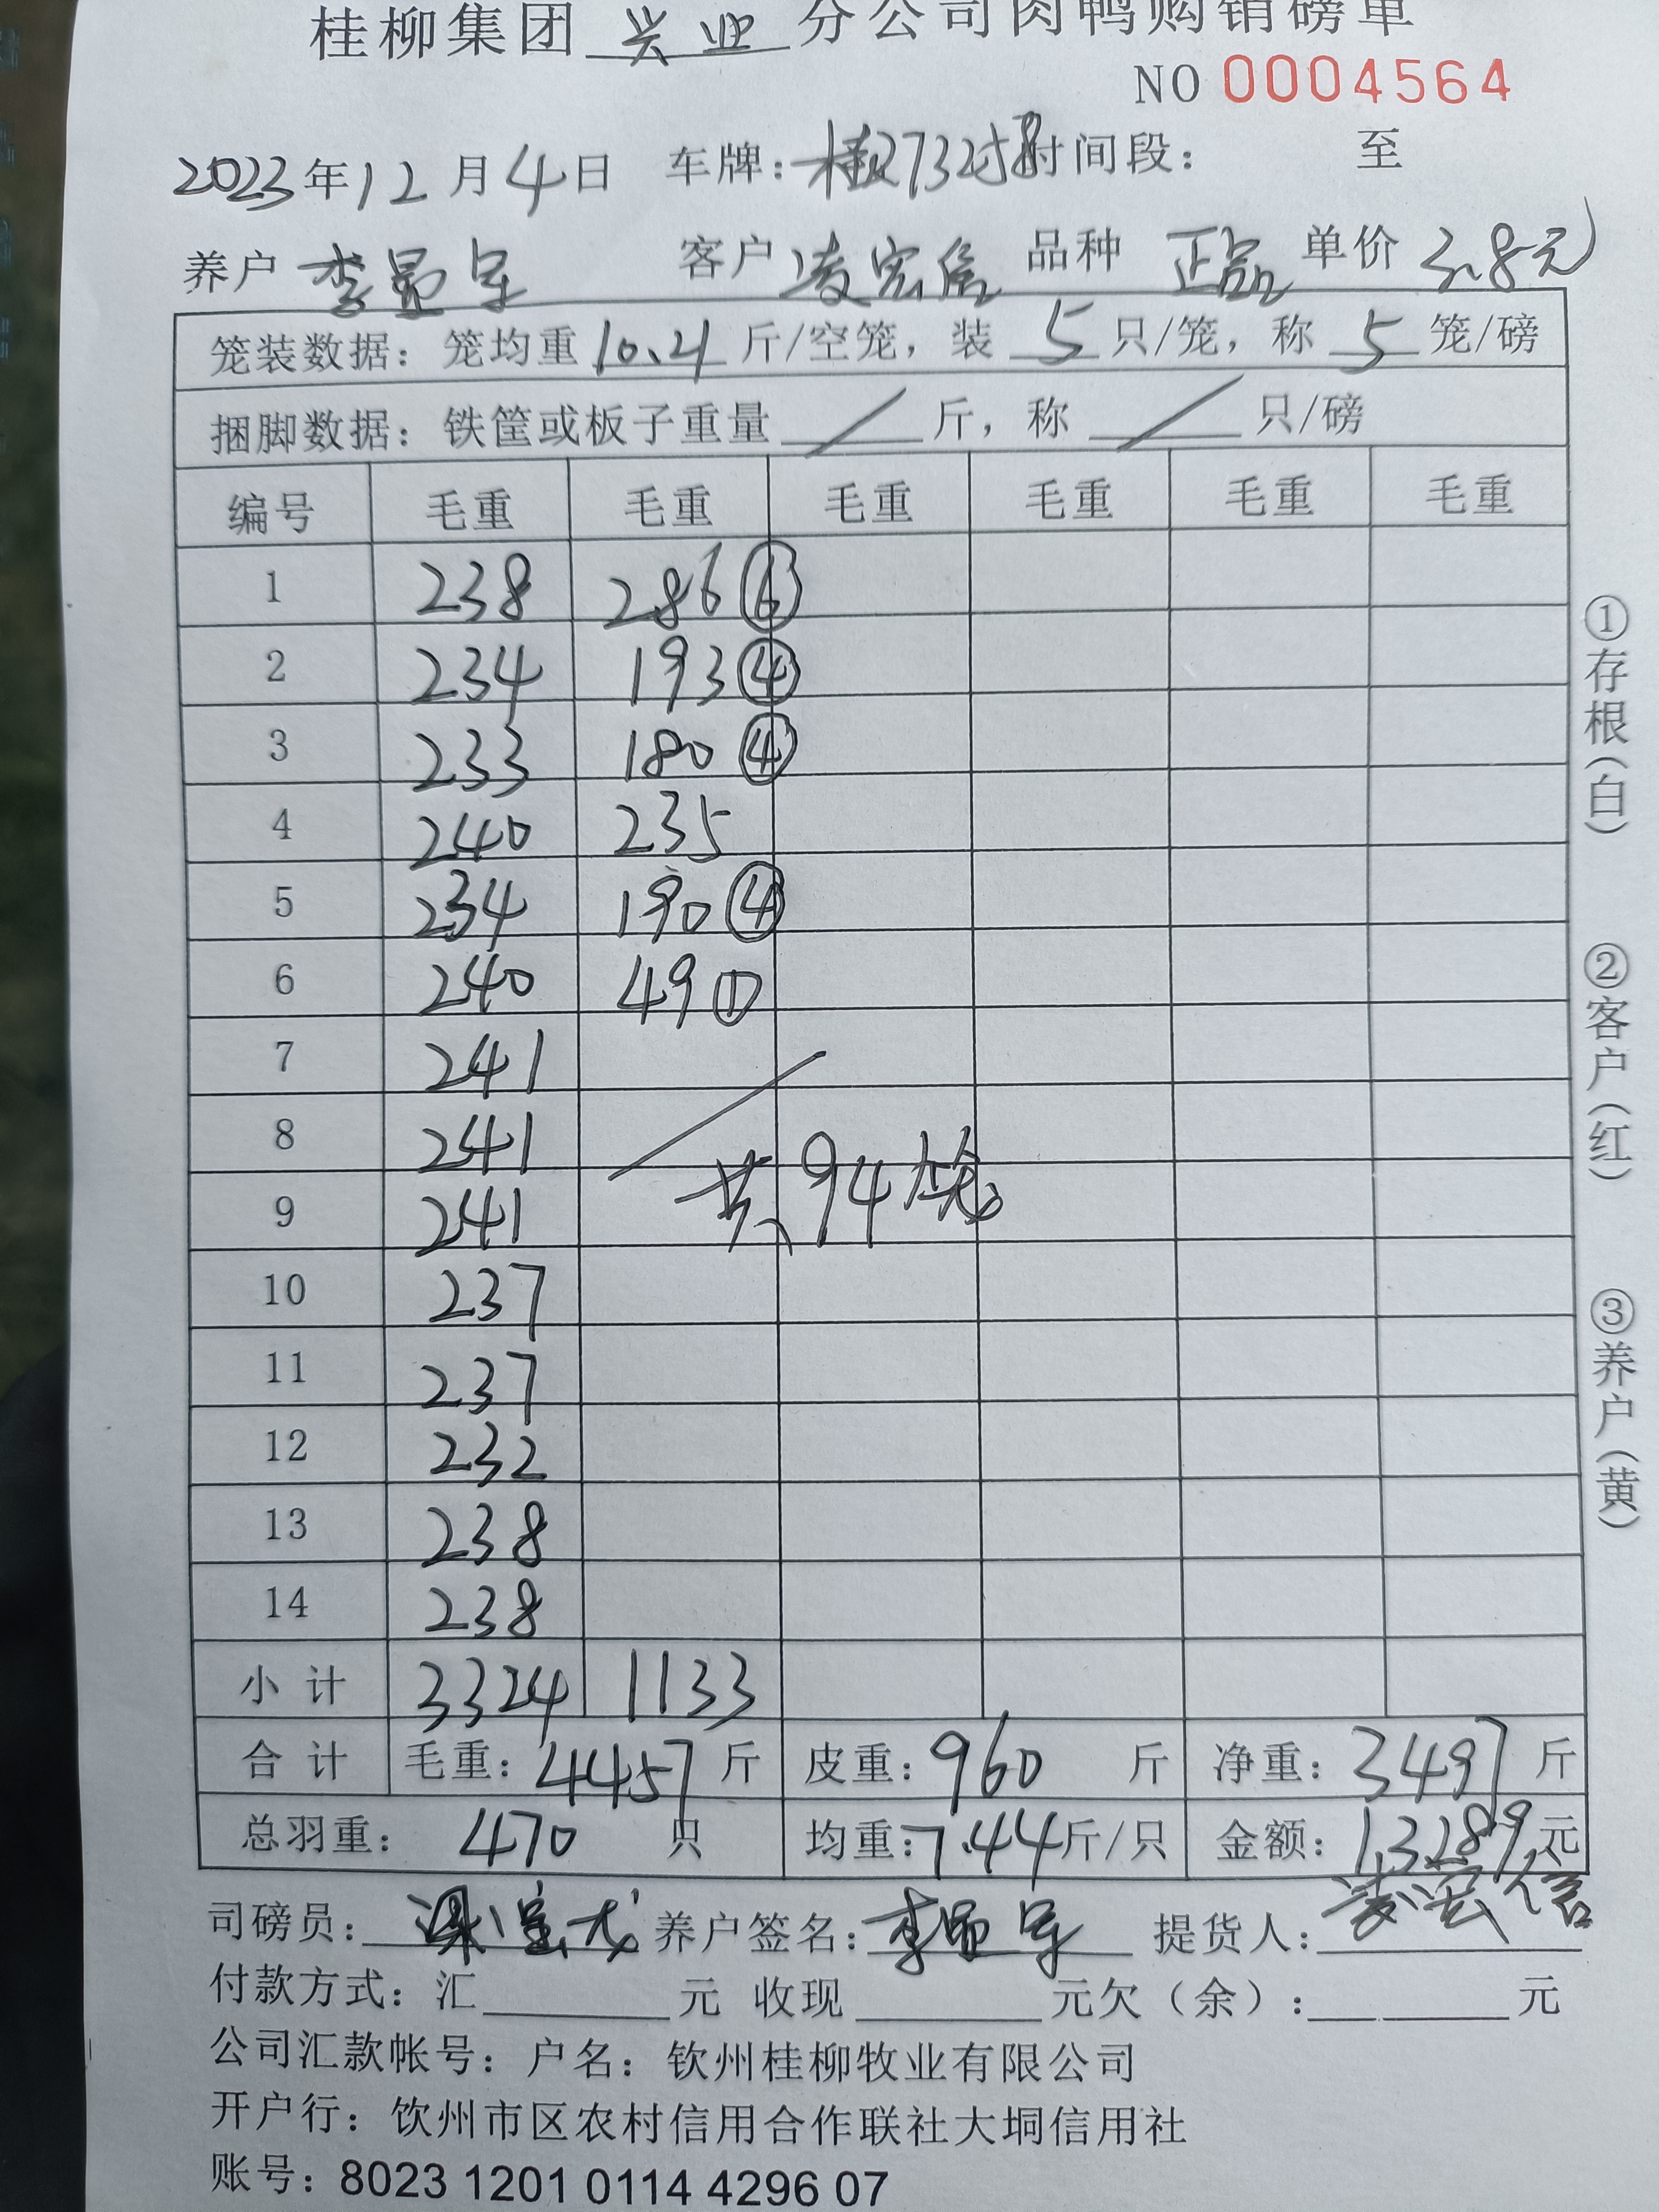 桂柳集团 兴业 分公司肉鸭购销磅单
NO 0004564
2023年12月4日 车牌: 时间段: 至
养户 李显军 客户 凌宏信 品种 正品 单价 3.8元
笼装数据: 笼均重 10.21 斤/空笼, 装 5 只/笼, 称 5 笼/磅
捆脚数据: 铁筐或板子重量 / 斤, 称 / 只/磅
编号 毛重 毛重 毛重 毛重 毛重 毛重
1 238 286 ⑥
2 234 193 ④
3 233 180 ④
4 240 235
5 234 190 ④
6 240 49 ①
7 241
8 241
共94笼
9 241
10 237
11 237
12 232
13 238
14 238
小计 3324 1133
合计 毛重: 4457 斤 皮重: 960 斤 净重: 3497 斤
总羽重: 470 只 均重: 7.44 斤/只 金额: 13289 元
司磅员: 养户签名: 李显军 提货人: 凌宏信
付款方式: 汇 元 收现 元欠(余): 元
公司汇款帐号: 户名: 钦州桂柳牧业有限公司
开户行: 钦州市区农村信用合作联社大垌信用社
账号: 8023 1201 0114 4296 07
①存根(白)
②客户(红)
③养户(黄)